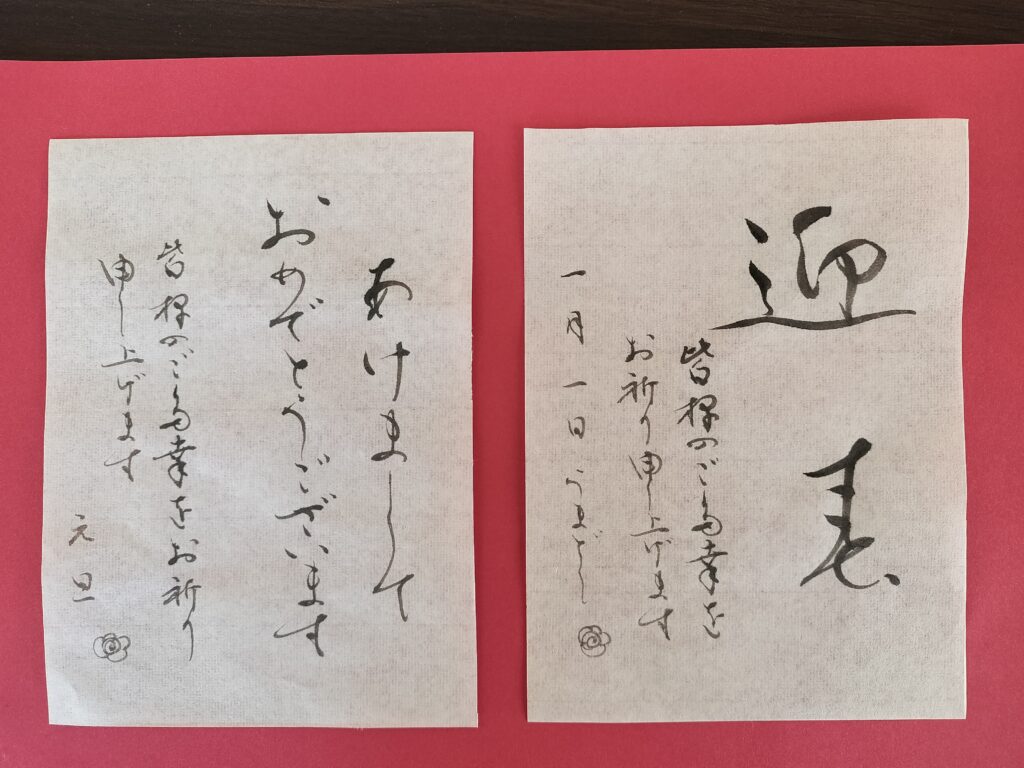 迎春
皆様のご多幸を
お祈り申し上げます
一月一日 うまどし
あけまして
おめでとうございます
皆様のご多幸をお祈り
申し上げます
元旦